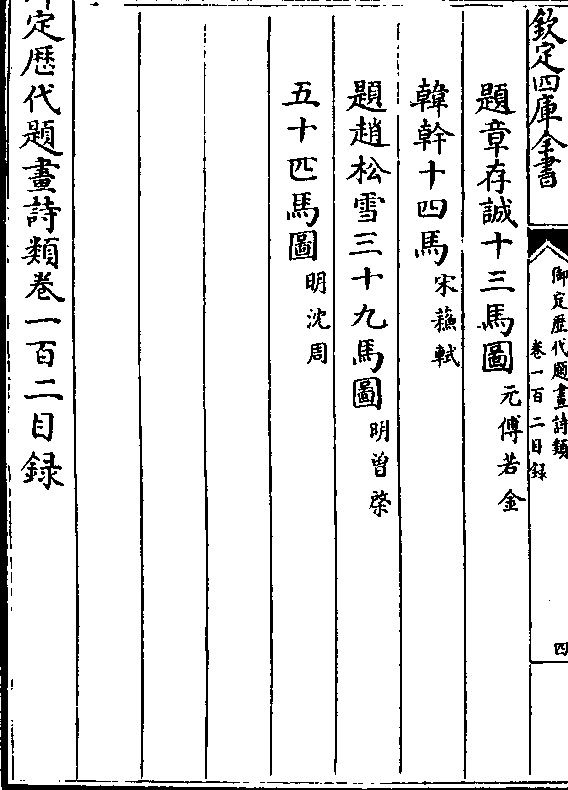 欽定四庫全書
御定歴代題畫詩類
卷一百二目録
四
題章存誠十三馬圖 元傅若金
韓幹十四馬 宋蘇軾
題趙松雪三十九馬圖 明曽棨
五十匹馬圖 明沈周
御定歴代題畫詩類卷一百二目録